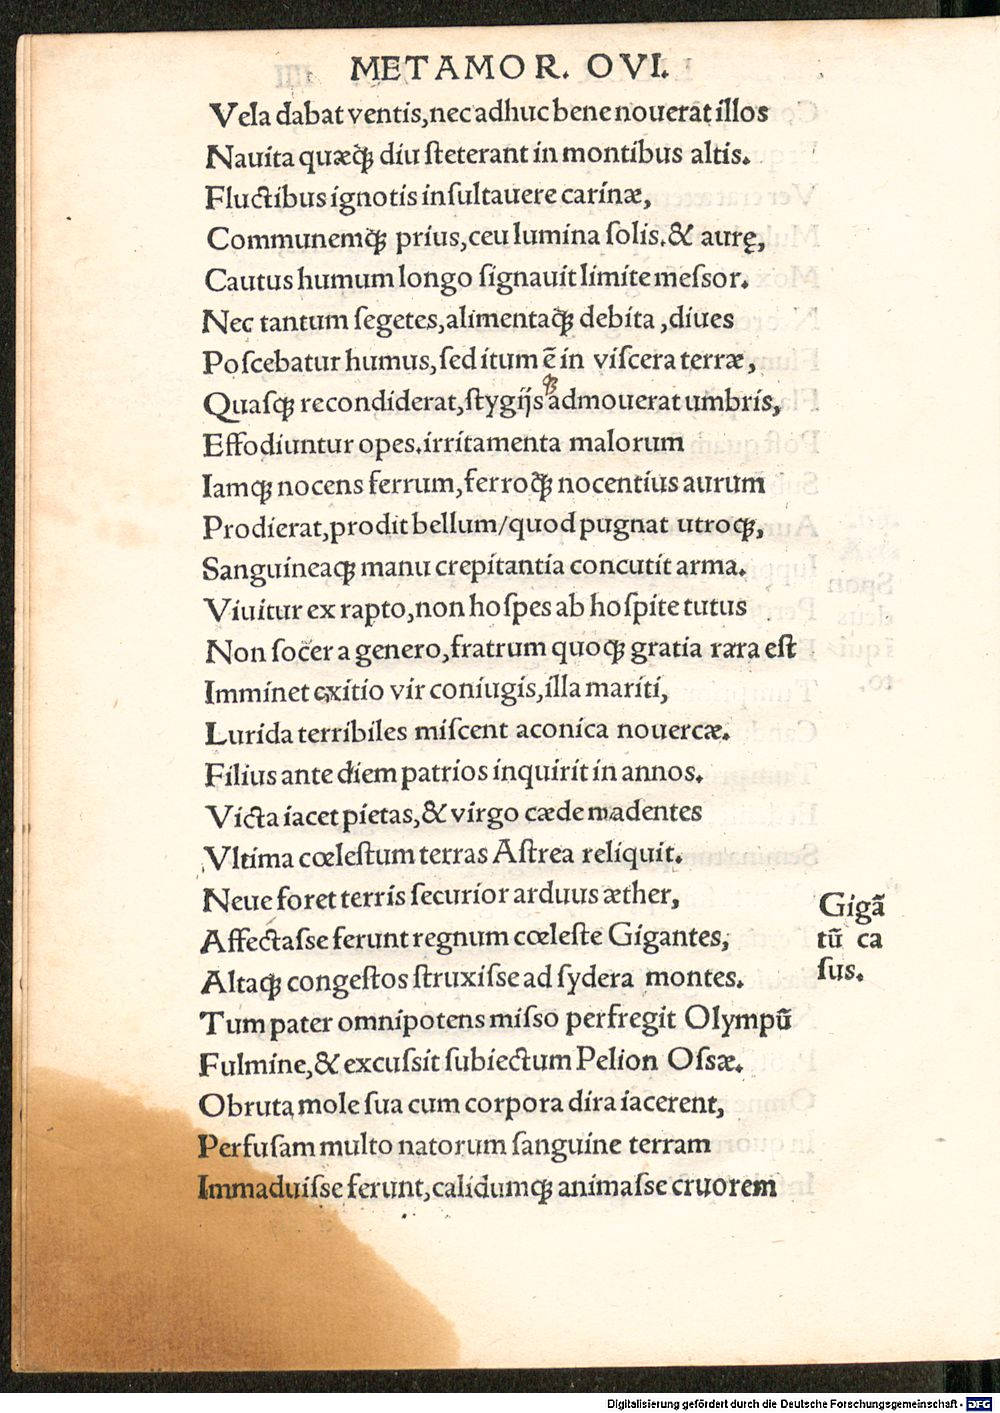 METAMOR. OVI.
Vela dabat ventis,nec adhuc bene nouerat illos
Nauita quæq̃ȝ diu steterant in montibus altis.
Fluctibus ignotis insultauere carinæ,
Communemq̃ȝ prius,ceu lumina solis.& aurę,
Cautus humum longo signauit limite messor.
Nec tantum segetes,alimentaq̃ȝ debita ,diues
Poscebatur humus,sed itum ē in viscera terræ,
Quasqȝ recondiderat,stygijs qȝ admouerat umbris,
Effodiuntur opes.irritamenta malorum
Iamqȝ nocens ferrum,ferroq̃ȝ nocentius aurum
Prodierat,prodit bellum/quod pugnat utroqȝ,
Sanguineaqȝ manu crepitantia concutit arma.
Viuitur ex rapto,non hospes ab hospite tutus
Non socer a genero,fratrum quoqȝ gratia rara est
Imminet exitio vir coniugis,illa mariti,
Lurida terribiles miscent aconica nouercæ.
Filius ante diem patrios inquirit in annos.
Victa iacet pietas,& virgo cæde madentes
Vltima cœlestum terras Astrea reliquit.
Neue foret terris securior arduus æther,
Affectasse ferunt regnum cœleste Gigantes,
Altaqȝ congestos struxisse ad sydera montes.
Tum pater omnipotens misso perfregit Olympū
Fulmine,& excussit subiectum Pelion Ossæ.
Obruta mole sua cum corpora dira iacerent,
Perfusam multo natorum sanguine terram
Immaduisse ferunt,calidumqȝ animasse cruorem
Gigã
tū ca
sus.
Digitalisierung gefördert durch die Deutsche Forschungsgemeinschaft - DFG